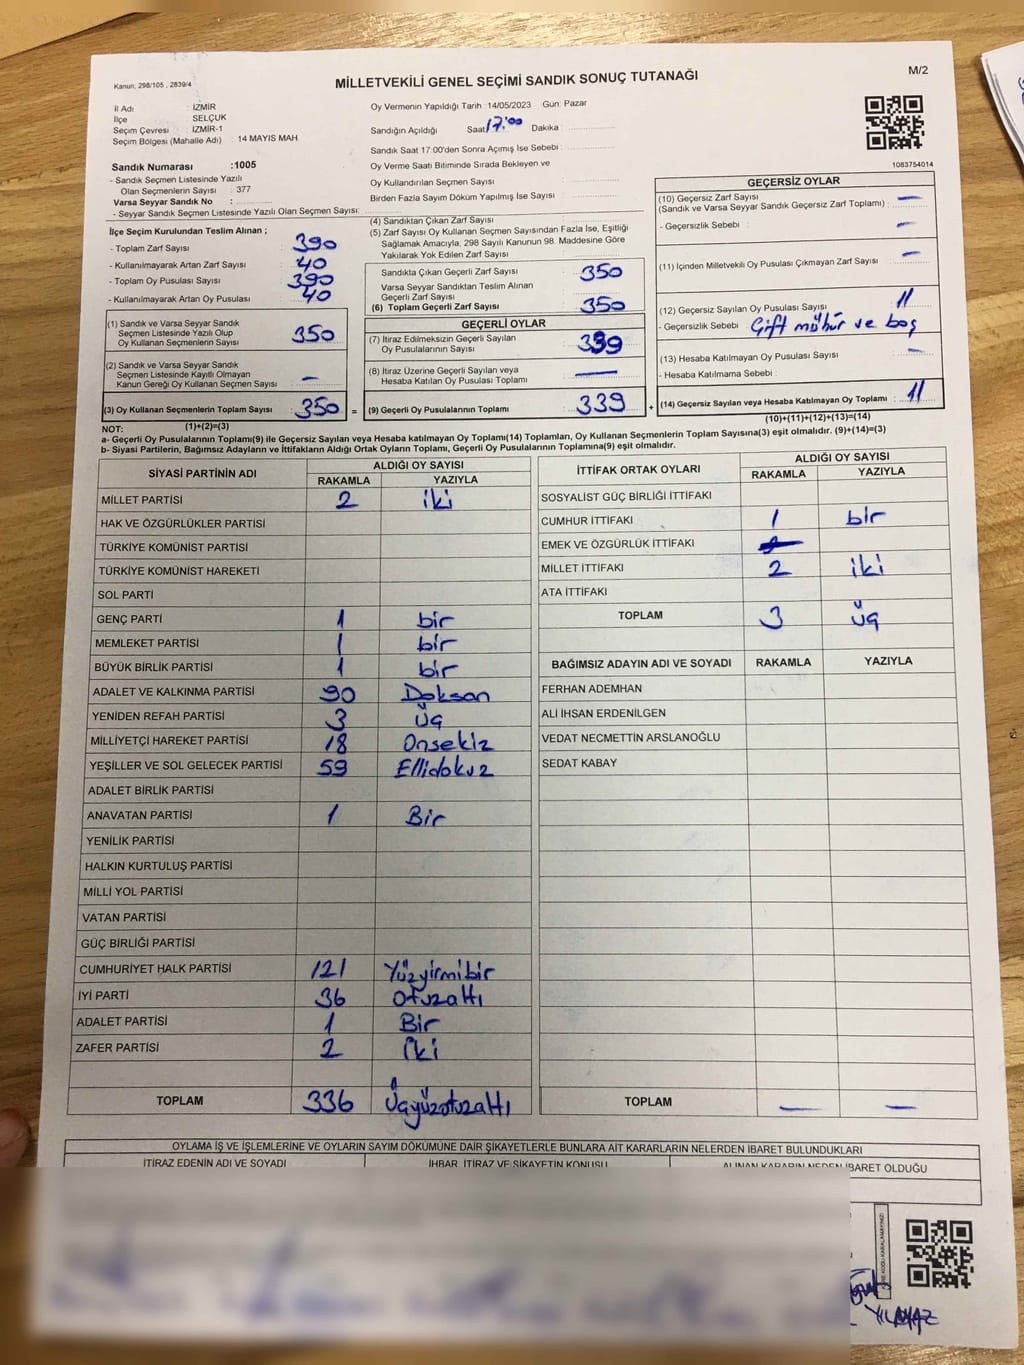 MİLLETVEKİLİ GENEL SEÇİMİ SANDIK SONUÇ TUTANAĞI
M/2
Kanun: 298/105 , 2839/4
İl Adı : İZMİR
İlçe SELÇUK
Seçim Çevresi : İZMİR-1
Seçim Bölgesi (Mahalle Adı) : 14 MAYIS MAH.
Sandık Numarası :1005
- Sandık Seçmen Listesinde Yazılı
Olan Seçmenlerin Sayısı : 377
Varsa Seyyar Sandık No :
- Seyyar Sandık Listesinde Yazılı Olan Seçmen Sayısı:
Oy Vermenin Yapıldığı Tarih :14/05/2023 Gün: Pazar
Sandığın Açıldığı Saat: 17:00 Dakika :
Sandık Saat 17:00'den Sonra Açımış İse Sebebi :
Oy Verme Saati Bitiminde Sırada Bekleyen ve
Oy Kullandırılan Seçmen Sayısı
Birden Fazla Sayım Döküm Yapılmış İse Sayısı
1083754014
İlçe Seçim Kurulundan Teslim Alınan ;
- Toplam Zarf Sayısı 390
- Kullanılmayarak Artan Zarf Sayısı 40
- Toplam Oy Pusulası 390
- Kullanılmayarak Artan Oy Pusulası 40
(1) Sandık ve Varsa Seyyar Sandık
Seçmen Listesinde Yazılı Olup
Oy Kullanan Seçmenlerin Sayısı 350
(2) Sandık ve Varsa Seyyar Sandık
Seçmen Listesinde Kayıtlı Olmayan
Kanun Gereği Oy Kullanan Seçmen Sayısı –
(3) Oy Kullanan Seçmenlerin Toplam Sayısı : 350 =
(1)+(2)=(3)
(4) Sandıktan Çıkan Zarf Sayısı
(5) Zarf Sayısı Oy Kullanan Seçmen Sayısından Fazla İse, Eşitliği
Sağlamak Amacıyla, 298 Sayılı Kanunun 98. Maddesine Göre
Yakılarak Yok Edilen Zarf Sayısı
Sandıkta Çıkan Geçerli Zarf Sayısı 350
Varsa Seyyar Sandıktan Teslim Alınan
Geçerli Zarf Sayısı
(6) Toplam Geçerli Zarf Sayısı 350
GEÇERLİ OYLAR
(7) İtiraz Edilmeksizin Geçerli Sayılan
Oy Pusulalarının Sayısı 339
(8) İtiraz Üzerine Geçerli Sayılan veya
Hesaba Katılan Oy Pusulası Toplamı —
(9) Geçerli Oy Pusulalarının Toplamı 339 +
GEÇERSİZ OYLAR
(10) Geçersiz Zarf Sayısı –
(Sandık ve Varsa Seyyar Sandık Geçersiz Zarf Toplamı) :
- Geçersizlik Sebebi : –
(11) İçinden Milletvekili Oy Pusulası Çıkmayan Zarf Sayısı –
(12) Geçersiz Sayılan Oy Pusulası Sayısı 11
- Geçersizlik Sebebi Çift mühür ve boş
(13) Hesaba Katılmayan Oy Pusulası Sayısı –
- Hesaba Katılmama Sebebi :
(14) Geçersiz Sayılan veya Hesaba Katılmayan Oy Toplamı : 11
(10)+(11)+(12)+(13)=(14)
NOT:
a- Geçerli Oy Pusulalarının Toplamı(9) ile Geçersiz Sayılan veya Hesaba katılmayan Oy Toplamı(14) Toplamları, Oy Kullanan Seçmenlerin Toplam Sayısına(3) eşit olmalıdır. (9)+(14)=(3)
b- Siyasi Partilerin, Bağımsız Adayların ve İttifakların Aldığı Ortak Oyların Toplamı, Geçerli Oy Pusulalarının Toplamına(9) eşit olmalıdır.
SİYASİ PARTİNİN ADI ALDIĞI OY SAYISI
RAKAMLA YAZIYLA
MİLLET PARTİSİ 2 iki
HAK VE ÖZGÜRLÜKLER PARTİSİ
TÜRKİYE KOMÜNİST PARTİSİ
TÜRKİYE KOMÜNİST HAREKETİ
SOL PARTİ
GENÇ PARTİ 1 bir
MEMLEKET PARTİSİ 1 bir
BÜYÜK BİRLİK PARTİSİ 1 bir
ADALET VE KALKINMA PARTİSİ 90 Doksan
YENİDEN REFAH PARTİSİ 3 üç
MİLLİYETÇİ HAREKET PARTİSİ 18 Onsekiz
YEŞİLLER VE SOL GELECEK PARTİSİ 59 Ellidokuz
ADALET BİRLİK PARTİSİ
ANAVATAN PARTİSİ 1 Bir
YENİLİK PARTİSİ
HALKIN KURTULUŞ PARTİSİ
MİLLİ YOL PARTİSİ
VATAN PARTİSİ
GÜÇ BİRLİĞİ PARTİSİ
CUMHURİYET HALK PARTİSİ 121 Yüzyirmibir
İYİ PARTİ 36 Otuzaltı
ADALET PARTİSİ 1 Bir
ZAFER PARTİSİ 2 İki
TOPLAM 336 Üçyüzotuzaltı
İTTİFAK ORTAK OYLARI ALDIĞI OY SAYISI
RAKAMLA YAZIYLA
SOSYALİST GÜÇ BİRLİĞİ İTTİFAKI
CUMHUR İTTİFAKI 1 bir
EMEK VE ÖZGÜRLÜK İTTİFAKI
MİLLET İTTİFAKI 2 iki
ATA İTTİFAKI
TOPLAM 3 üç
BAĞIMSIZ ADAYIN ADI VE SOYADI RAKAMLA YAZIYLA
FERHAN ADEMHAN
ALİ İHSAN ERDENİLGEN
VEDAT NECMETTİN ARSLANOĞLU
SEDAT KABAY
TOPLAM — —
OYLAMA İŞ VE İŞLEMLERİNE VE OYLARIN SAYIM DÖKÜMÜNE DAİR ŞİKAYETLERLE BUNLARA AİT KARARLARIN NELERDEN İBARET BULUNDUKLARI
İTİRAZ EDENİN ADI VE SOYADI İHBAR, İTİRAZ VE ŞİKAYETİN KONUSU ALINAN KARARIN NEDEN İBARET OLDUĞU
YILMAZ